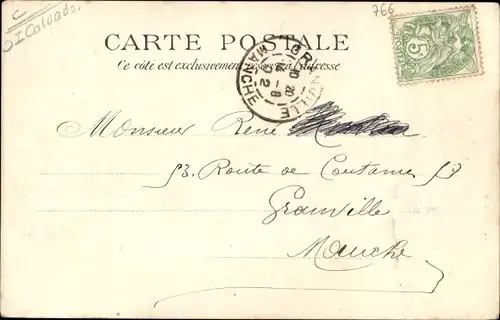 C
SI Calvados
766
5
CARTE POSTALE
Ce côté est exclusivement réservé à l'adresse
GRANVILLE
10 20
14 - 8
02
MANCHE
Monsieur René
53. Route de Coutances 53
Granville
Manche